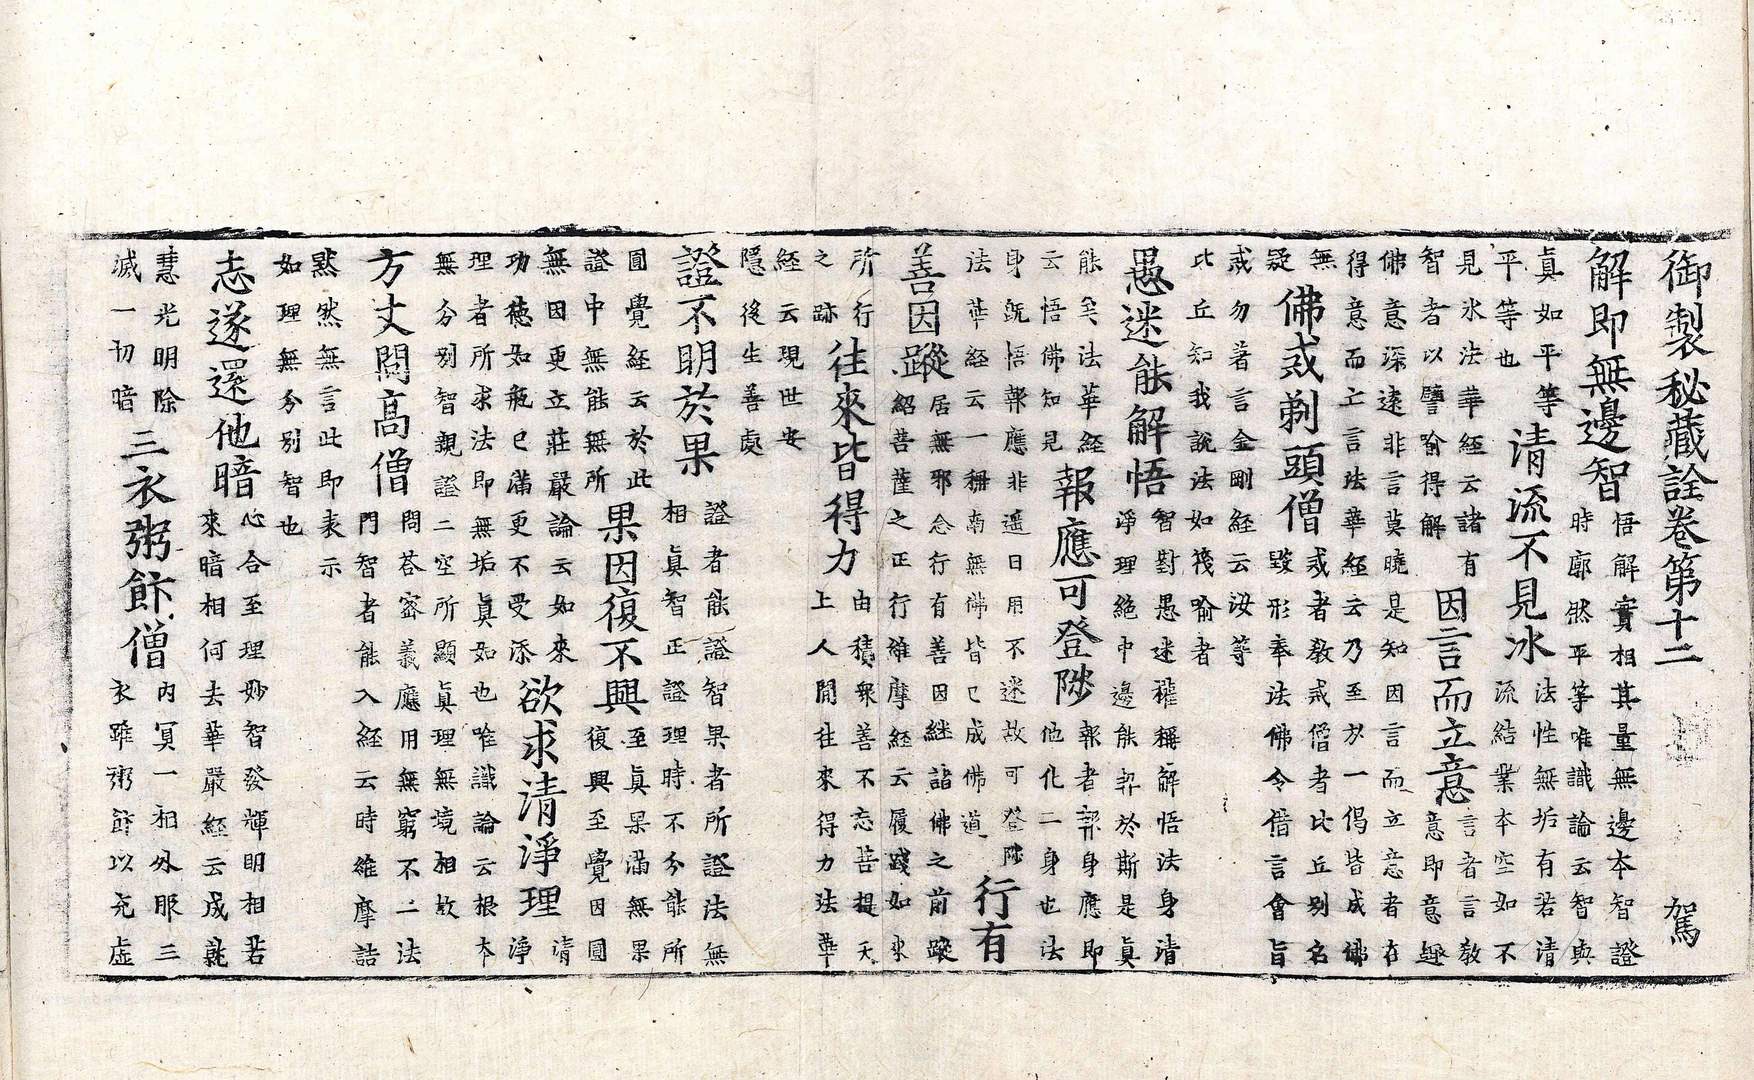 御製秘藏詮卷第十二　駕
解即無邊智
悟解實相其量無邊本智證
時廓然平等唯識論云智與
真如平等
平等也
清流不見冰
法性無垢有若清
流結業本空如不
見氷法華經云諸有
智者以譬喻得解
因言而立意
言者言教
意即意趣
佛意深遠非言莫曉是知因言而立意者在
得意而亡言法華經云乃至於一偈皆成佛
無
疑
佛或剃頭僧
或者教或僧者比丘別名
毀形奉法佛令借言會旨
或勿著言金剛經云汝等
比丘知我說法如筏喻者
愚迷能解悟
智對愚迷確稱解悟法身清
淨理絕中邊能契於斯是真
能矣法華經
云悟佛知見
報應可登陟
報者報身應即
他化二身也法
身既悟報應非遥日用不迷故可登陟
法華經云一稱南無佛皆已成佛道
行有
善因蹤
居無邪念行有善因継諸佛之前蹤
紹菩薩之正行維摩經云履踐如來
所行
之跡
往來皆得力
由積衆善不忘菩提天
上人間往來得力法華
經云現世安
隱後生善處
證不明於果
證者能證智果者所證法無
相真智正證理時不分能所
圓覺經云於此
證中無能無所
果因復不興
至真果滿無果
復興至覺因圓
無因更立莊嚴論云如來
功德如瓶已滿更不受添
欲求清淨理
清
淨
理者所求法即無垢真如也唯識論云根本
無分別智親證二空所顯真理無境相故
方丈問高僧
問荅密義應用無窮不二法
門智者能入經云時維摩詰
默然無言此即表示
如理無分別智也
志遂還他暗
心合至理妙智發輝明相若
來暗相何去華嚴經云成就
慧光明除
滅一切暗
三衣粥飰僧
內冥一相外服三
衣雖粥飰以充虛